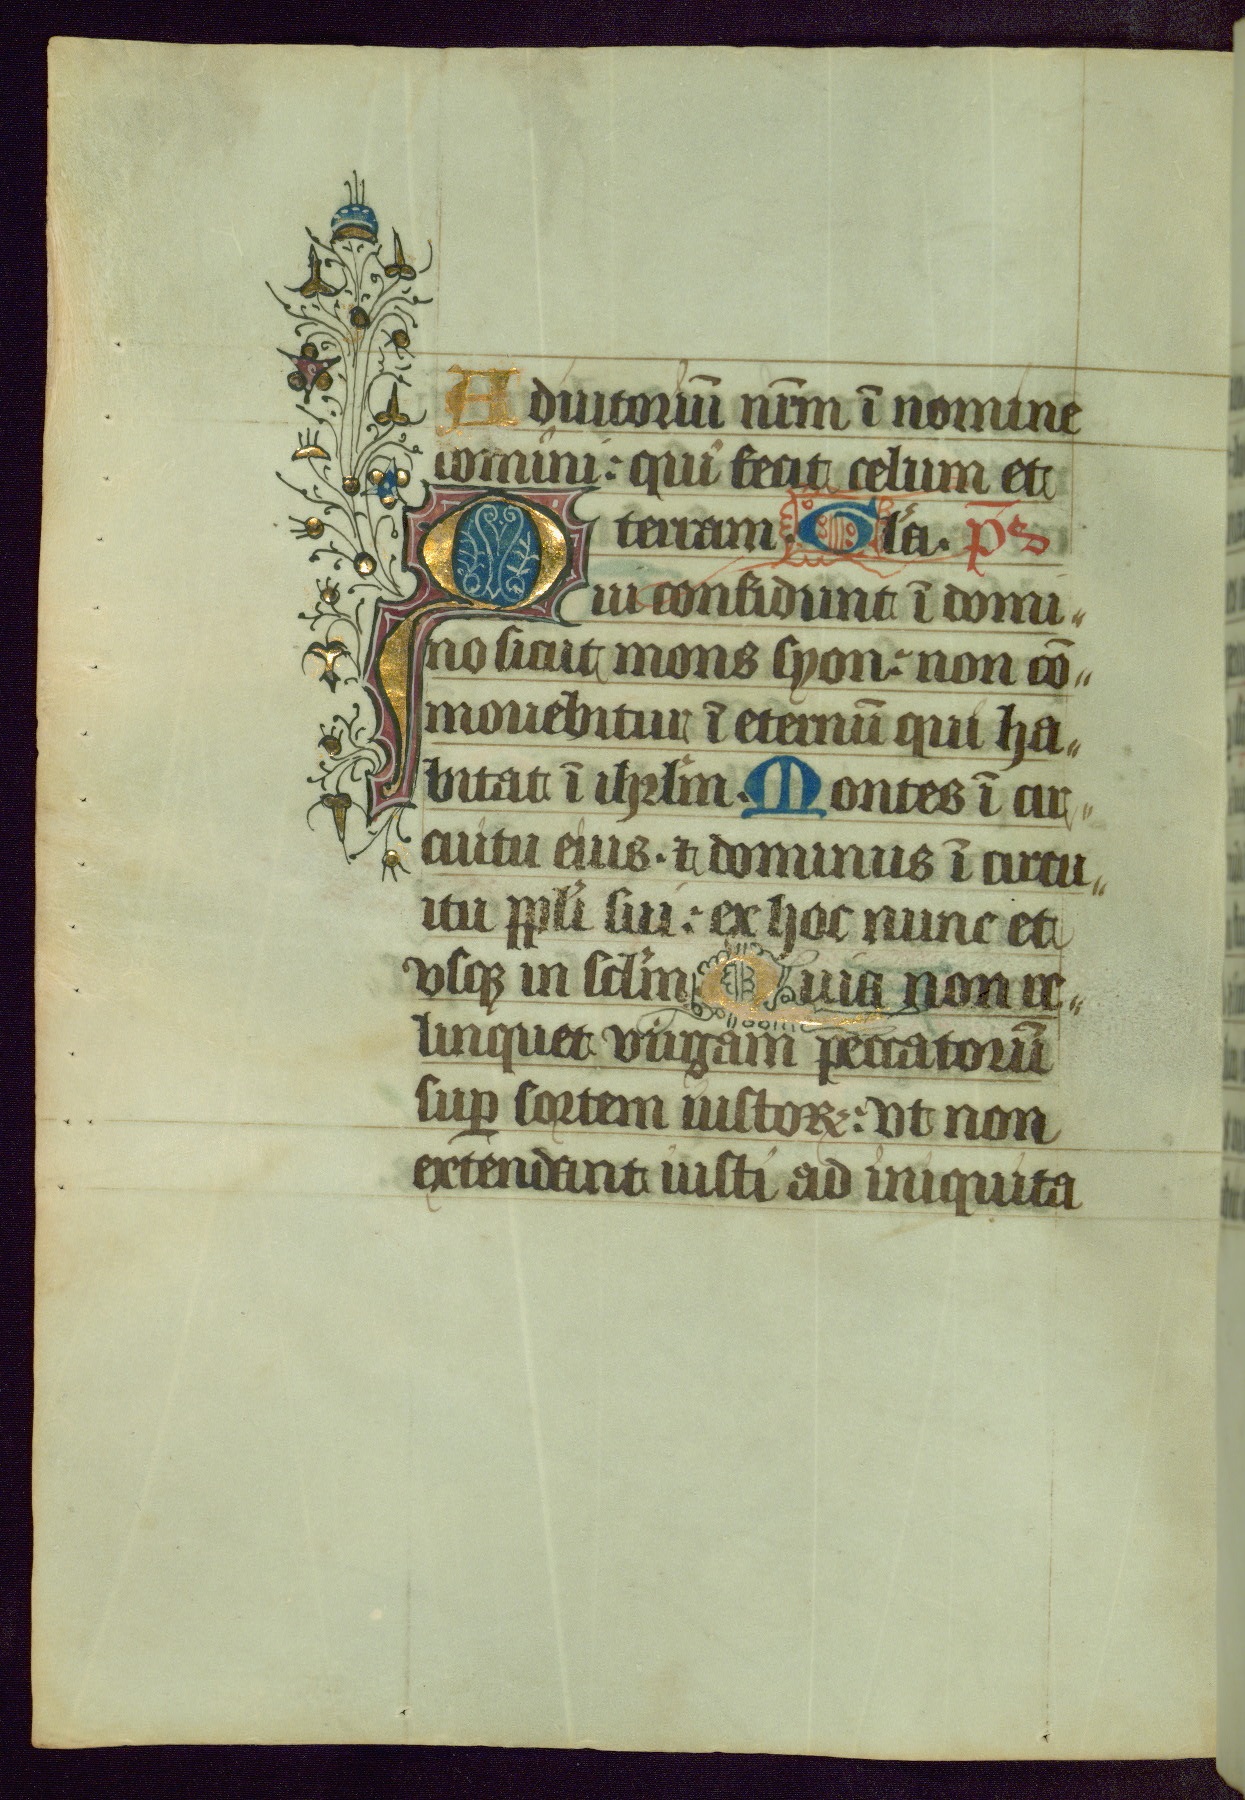 Adiutoriū nr̄m ī nomine
domini: qui fecit celum et
terram. Gl̄a. p̄s
Qui confidunt ī domi〃
no sicut mons syon: non cō〃
mouebitur ī eternū qui ha〃
bitat ī ihrl̄m. Montes ī cir〃
cuitu eius. ⁊ dominus ī circu〃
itu ppl̄i sui: ex hoc nunc et
vsqꝫ in scl̄m Quia non re〃
linquet virgam peccatorū
suꝑ sortem iustoꝝ: vt non
extendant iusti ad iniquita